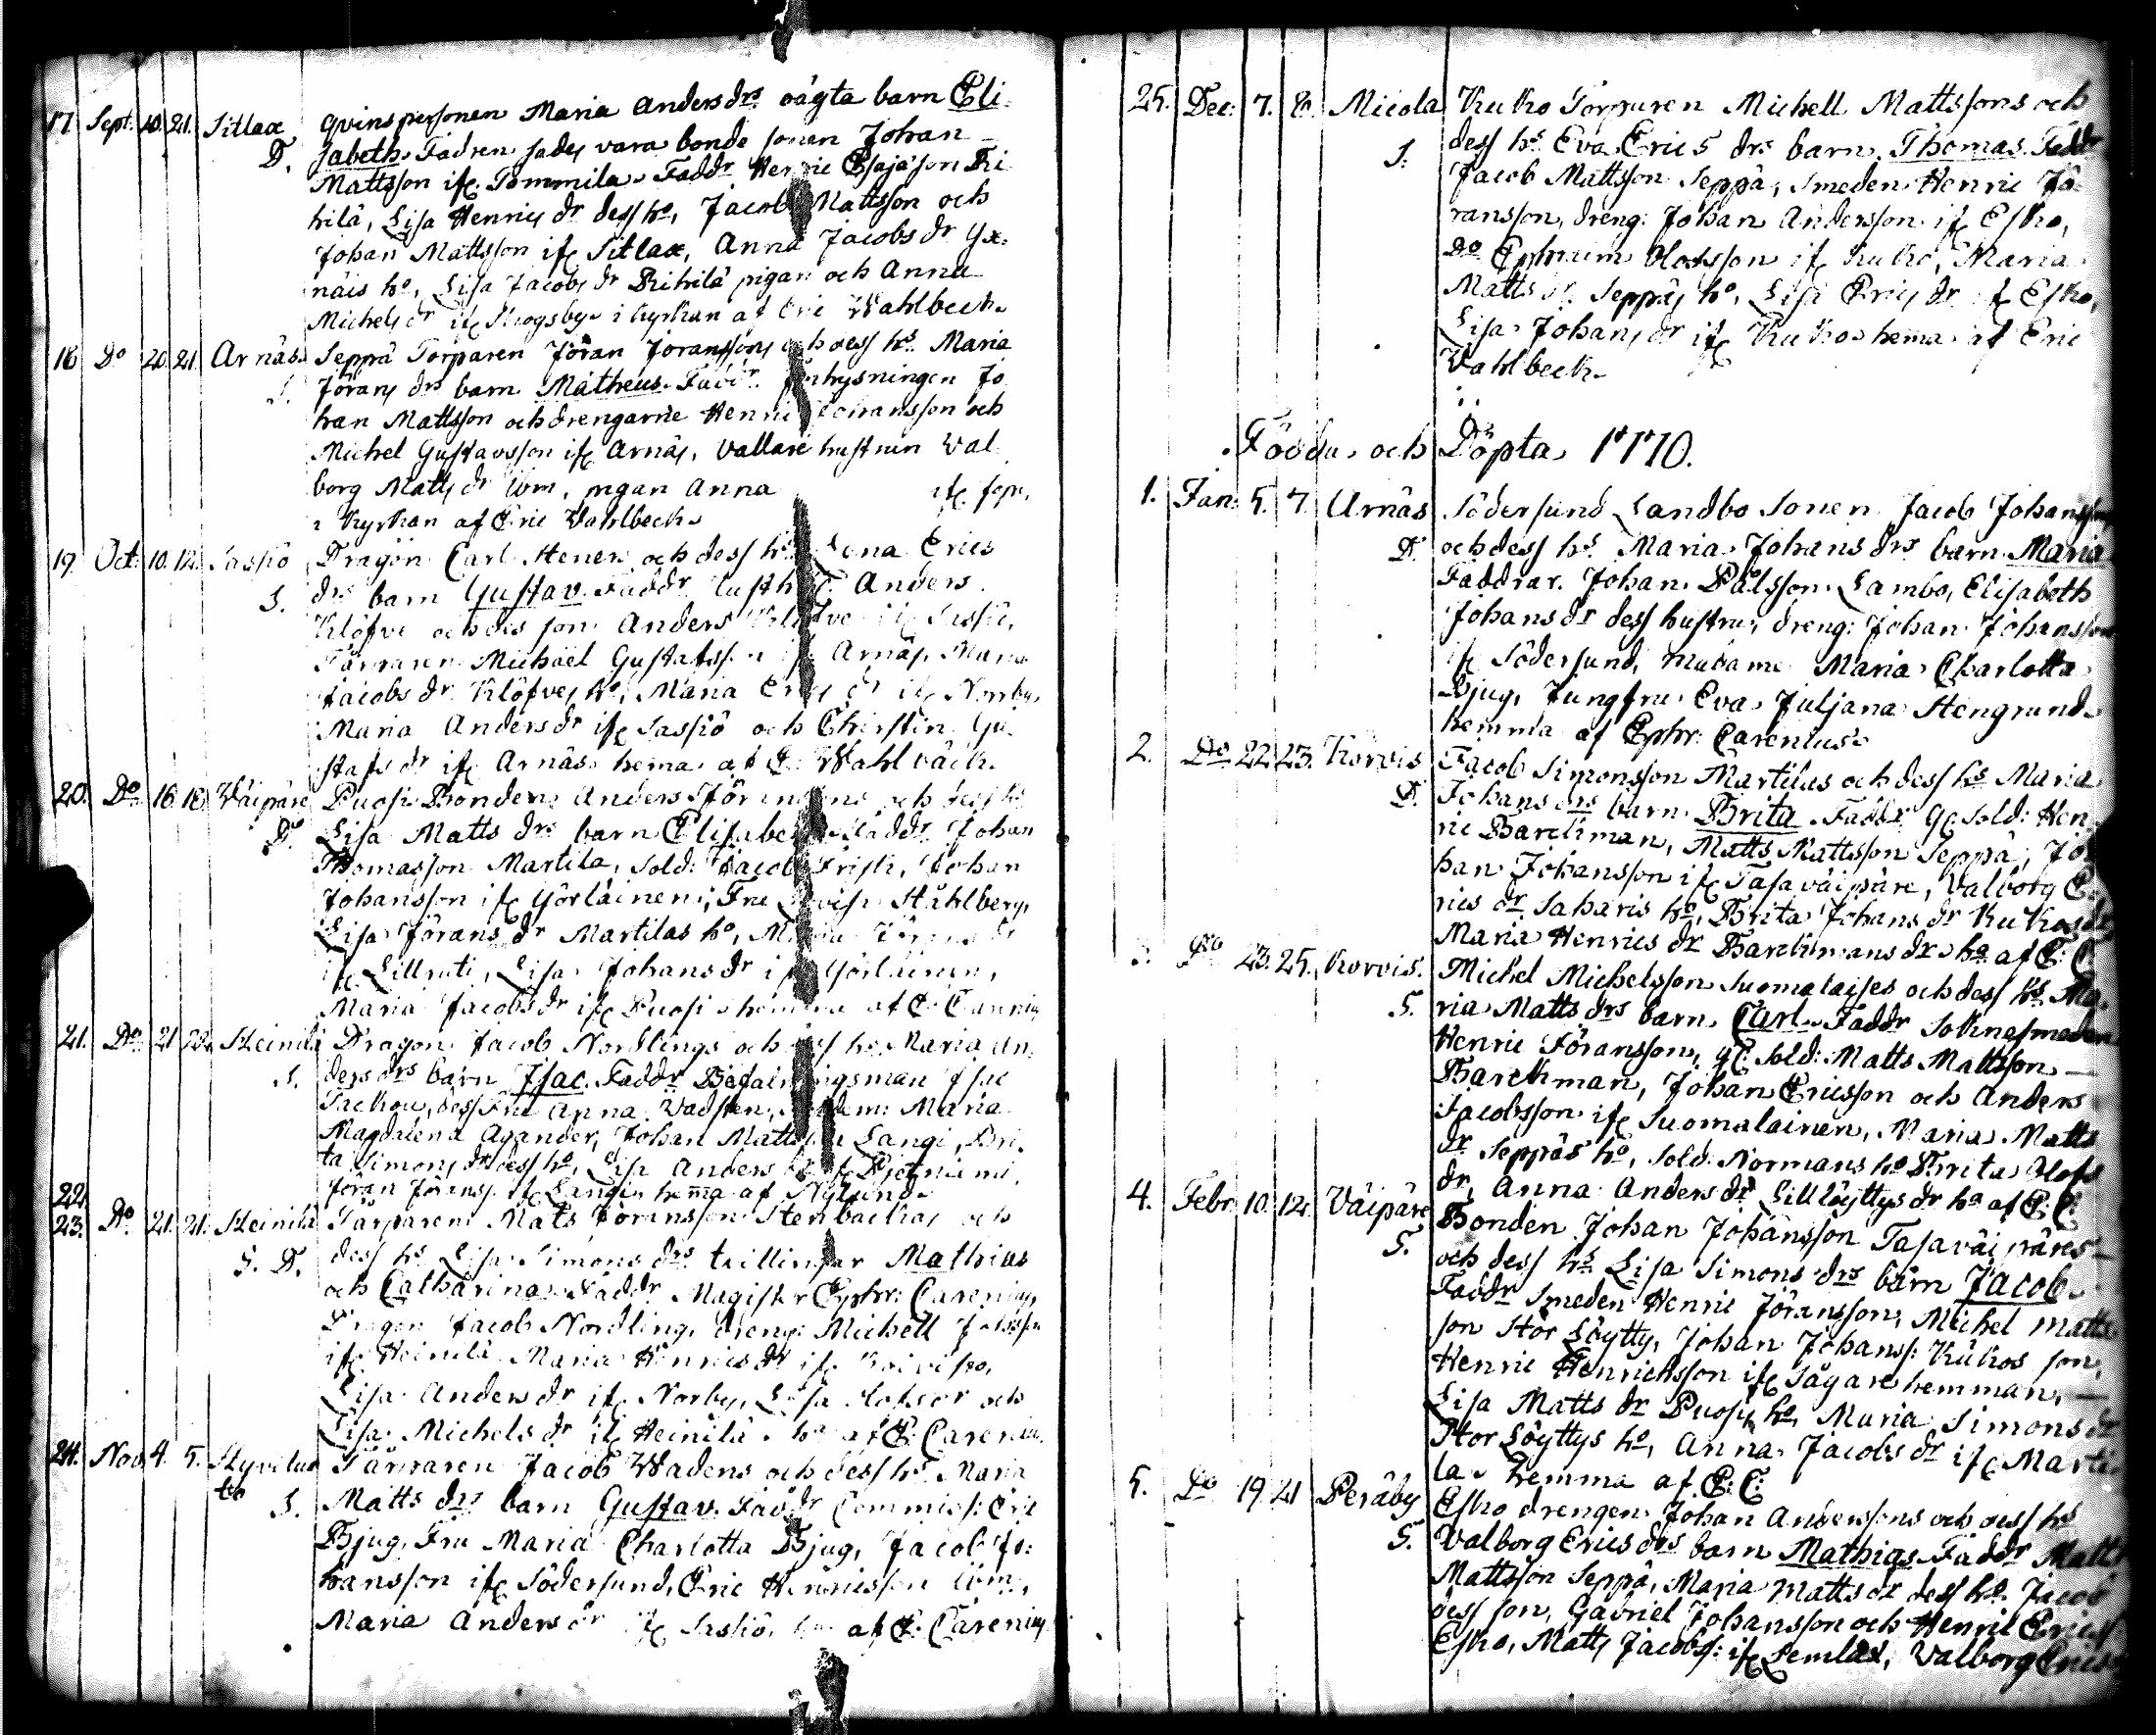 17 Sept. 20. 21. Sitlax qvinspersonen Maria Anders drs oägta barn Eli
D. sabeth. Fadren sades vara bonde sonen Johan
Mattsson ifr. Tommila. Faddr Henric Esajäson Ri
hilä, Lisa Henrics dr dess ho, Jacob Mattsson och
Johan Mattsson ifr Sitlax, Anna Jacobs dr Yx:
näis ho, Lisa Jacobs dr Rihilä pigan och Anna
Michels dr ifr Skogsby. i kyrkan af Eric Wahlbeck.
18 Do 20. 21. Arnäs Seppä Torparen Jöran Joranssons och dess hs Maria
S. Jörans drs barn Matheus. Faddr. Inhysningen Jo
han Mattsson och drengarne Henric Johansson och
Michel Gustavsson ifr Arnäs, vallare hustrun Val
borg Matts dr ibm, pigan Anna ifr
i kyrkan af Eric Wahlbeck.
19. Oct. 10. 12. Sasiö Dragon Carl Steners och dess hs Lena Erics
S. drs barn Gustav. Faddr Anders
Klöfve och des son Anders Klöfve ifr Sasiö,
Tärparen Michael Gustafsson ifr Arnäs, Maria
Jacobs dr Klöfves ho, Maria Erics dr ifr Norrby,
Maria Anders dr ifr Sasiö och Christin Gu
stafs dr ifr Arnäs. hema af E. Wahlbäck.
20. Do 16. 18. Väipäre Puosi Bonden Anders Joranssons och dess hs
D. Lisa Matts drs barn Elisabeth. Faddr Johan
Thomasson Martila, Sold: Jacob Frisk, Johan
Johansson ifr Görläinen, Fru Lovisa Ståhlberg,
Lisa Jörans dr Martilas ho, Maria
ifr Lillruti, Lisa Johans dr ifr Görläinen,
Maria Jacobs dr ifr Puosi. hemma af E. Carenius
21. Do 21. 22. Heinilä Dragon Jacob Nordlings och dess hs Maria An
S. ders drs barn Isac. Faddr Befalningsman Isac
dess Fru Anna Vadsten, Maria
Magdalena Agander, Johan Mattsson Langi, Bri
ta Simons dr dess ho, Lisa Anders dr ifr Pjetniemi,
Jöran Jöranss. ifr Langi. hemma af Nylund.
22
23. Do 21. 21. Heinilä Tärparen Mats Joransson Stenbackas och
S. D. dess hs Lisa Simons drs tvillingar Mathias
och Catharina. Faddr Magister Ephr: Carenius,
Dragon Jacob Nordling, dreng: Michell
ifr Heinilä, Maria Henrics dr ifr
Lisa Anders dr ifr Norby, Lisa Olofs dr och
Lisa Michels dr ifr Heinilä. ha af E. Carenius
24. Nov. 4. 5. Tärparen Jacob Wadens och dess hs Maria
S. Matts drs barn Gustav. Faddr Commiss: Eric
Bjug, Fru Maria Charlotta Bjug, Jacob Jo:
hansson ifr Södersund, Eric Henricsson ibm,
Maria Anders dr ifr Sasiö, af E. Carenius
25. Dec: 7. 8. Micola Kukko Torparen Michell Mattssons och
S. dess hs Eva Erics drs barn Thomas. Faddr
Jacob Mattsson Seppä, Smeden Henric Jö
ransson, dreng: Johan Andersson ifr Esko,
Do Ephraim Olofsson ifr Kukko, Maria
Matts dr Seppäs ho, Lisa Erics dr ifr Esko,
Lisa Johans dr ifr Kukko. hema af Eric
Vahlbeck.
Födda och Döpta 1770.
1. Jan: 5. 7. Arnäs Södersund Landbo Sonen Jacob Johansson
D. och dess hs Maria Johans drs barn Maria
Faddrar. Johan Pålsson Lambo, Elisabeth
Johans dr dess hustru, dreng: Johan Johansson
ifr Södersund, Madame Maria Charlotta
Bjug, Jungfru Eva Juljana Stengrund.
hemma af Ephr: Carenius.
2. Do 22. 23. Korvis Jacob Simonsson Martilas och dess hs Maria
D. Johans drs barn Brita. Faddr Sold: Hen
ric Barckman, Matts Mattsson Seppä, Jo
han Johansson ifr Tasaväipäre, Valborg E
rics dr Saharis ho, Brita Johans dr Kukkos dr,
Maria Henrics dr Barckmans dr. ha af E: C:
3. Do 23. 25. Korvis. Michel Michelsson Suomalaises och dess hs Ma
S. ria Matts drs barn Carl. Faddr Soknesmeden
Henric Jöransson, Sold: Matts Mattsson
Barckman, Johan Ericsson och Anders
Jacobsson ifr Suomalainen, Maria Matts
dr Seppäs ho, Sold: Normans ho Brita Olofs
dr, Anna Anders dr Lill Löyttys dr ha af E: C:
4. Febr. 10. 12. Väipäre Bonden Johan Johansson Tasaväipäres
S. och dess hs Lisa Simons drs barn Jacob.
Faddr Smeden Henric Jöransson, Michel Matts
son Stor Löytty, Johan Johanss: Kukkos son,
Henric Henricksson ifr Sågare hemman,
Lisa Matts dr Puosis ho, Maria Simons dr
Stor Löyttys ho, Anna Jacobs dr ifr Marti
la. hemma af E: C:
5. Do 19. 21 Peräby Esko drengen Johan Anderssons och dess hs
S. Valborg Erics drs barn Mathias. Faddr Matts
Mattsson Seppä, Maria Matts dr dess ho, Jacob
dess son, Gabriel Johansson och Henric Erics
Esko, Matts Jacobs: ifr Semlax, Valborg Erics